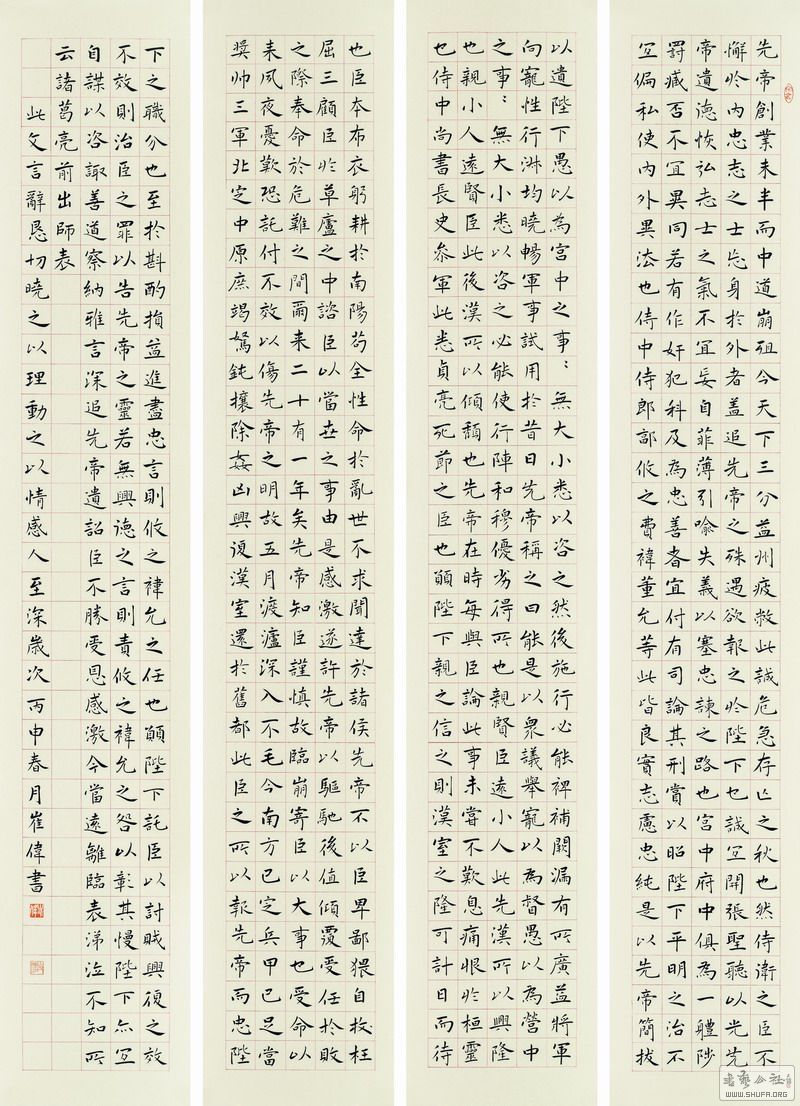 先帝創業未半而中道崩殂今天下三分益州疲敝此誠危急存亡之秋也然侍衛之臣不
懈於內忠志之士忘身於外者蓋追先帝之殊遇欲報之於陛下也誠宜開張聖聽以光先
帝遺德恢弘志士之氣不宜妄自菲薄引喻失義以塞忠諫之路也宮中府中俱為一體陟
罰臧否不宜異同若有作奸犯科及為忠善者宜付有司論其刑賞以昭陛下平明之治不
宜偏私使內外異法也侍中侍郎郭攸之費禕董允等此皆良實志慮忠純是以先帝簡拔
以遺陛下愚以為宮中之事〻無大小悉以咨之然後施行必能裨補闕漏有所廣益將軍
向寵性行淋均曉暢軍事試用於昔日先帝稱之曰能是以眾議舉寵以為督愚以為營中
之事〻無大小悉以咨之必能使行陣和穆優劣得所也親賢臣遠小人此先漢所以興隆
也親小人遠賢臣此後漢所以傾頹也先帝在時每與臣論此事未嘗不歎息痛恨於桓靈
也侍中尚書長史參軍此悉貞亮死節之臣也願陛下親之信之則漢室之隆可計日而待
也臣本布衣躬耕於南陽苟全性命於亂世不求聞達於諸侯先帝不以臣卑鄙猥自枉
屈三顧臣於草廬之中諮臣以當世之事由是感激遂許先帝以驅馳後值傾覆受任於敗
之際奉命於危難之間爾來二十有一年矣先帝知臣謹慎故臨崩寄臣以大事也受命以
來夙夜憂歎恐託付不效以傷先帝之明故五月渡瀘深入不毛今南方已定兵甲已足當
獎帥三軍北定中原庶竭駑鈍攘除姦凶興復漢室還於舊都此臣之所以報先帝而忠陛
下之職分也至於斟酌損益進盡忠言則攸之禕允之任也願陛下託臣以討賊興復之效
不效則治臣之罪以告先帝之靈若無興德之言則責攸之禕允之咎以彰其慢陛下亦宜
自謀以咨諏善道察納雅言深追先帝遺詔臣不勝受恩感激今當遠離臨表涕泣不知所
云諸葛亮前出師表
此文言辭懇切曉之以理動之以情感人至深歲次丙申春月崔偉書
書藝公社
WWW.SHUFA.ORG